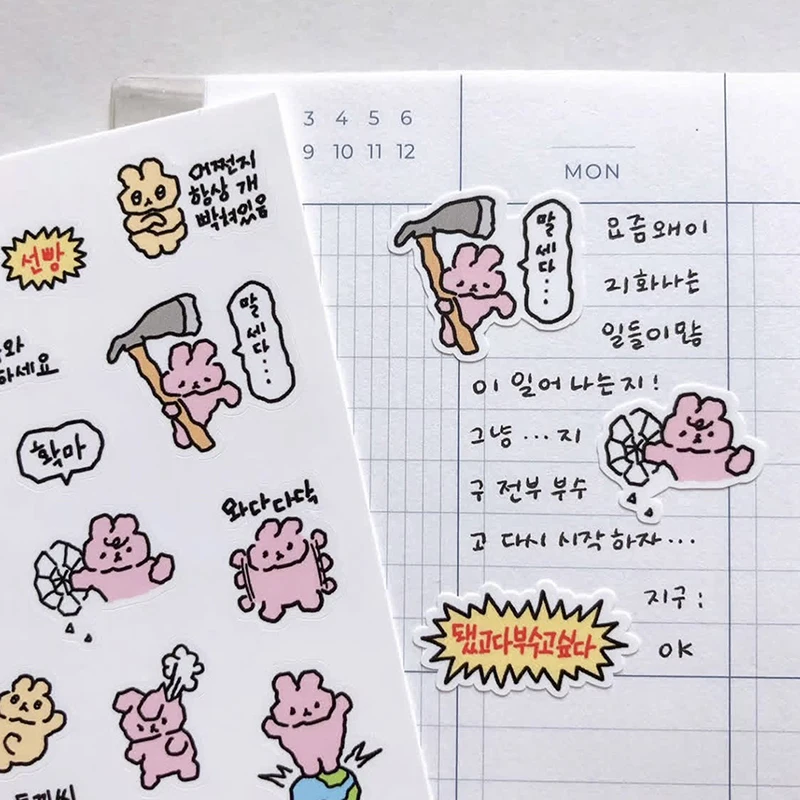 어쩐지
항상 개
빡쳐있음
선빵
말세다...
와
하세요
확마
와다다닥
3 4 5 6
9 10 11 12
MON
말세다...
요즘 왜 이
리 화나는
일들이 많
이 일어나는지!
그냥 ... 지
구 전부 부수
고 다시 시작하자...
지구 :
됐고다부수고싶다
OK